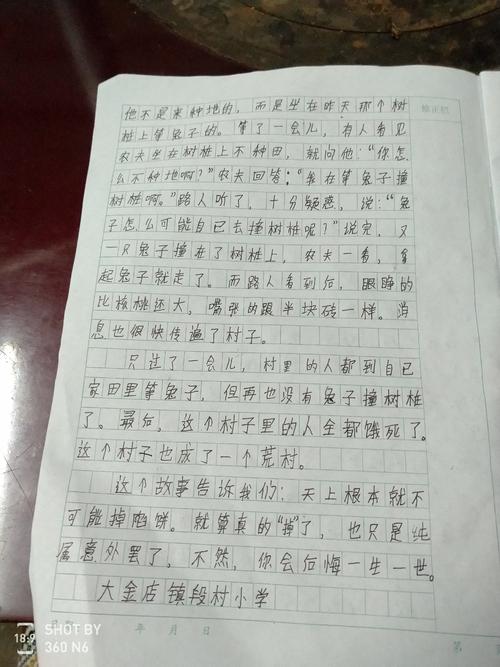 他不是来种地的，而是坐在昨天那个树
桩上等兔子的。等了一会儿，有人看见
农夫坐在树桩上不种田，就问他：“你怎
么不种地啊？”农夫回答：“我在等兔子撞
树桩啊。”路人听了，十分疑惑，说：“兔
子怎么可能自己去撞树桩呢？”说完，又
一只兔子撞在了树桩上，农夫一看，拿
起兔子就走了。而路人看到后，眼睁的
比核桃还大，嘴张的跟半块砖一样。消
息也很快传遍了村子。
只过了一会儿，村里的人都到自己
家田里等兔子，但再也没有兔子撞树桩
了。最后，这个村子里的人全都饿死了。
这个村子也成了一个荒村。
这个故事告诉我们：天上根本就不
可能掉馅饼。就算真的“掉”了，也只是纯
属意外罢了，不然，你会后悔一生一世。
大金店镇段村小学
年 月 日
第
SHOT BY
360 N6